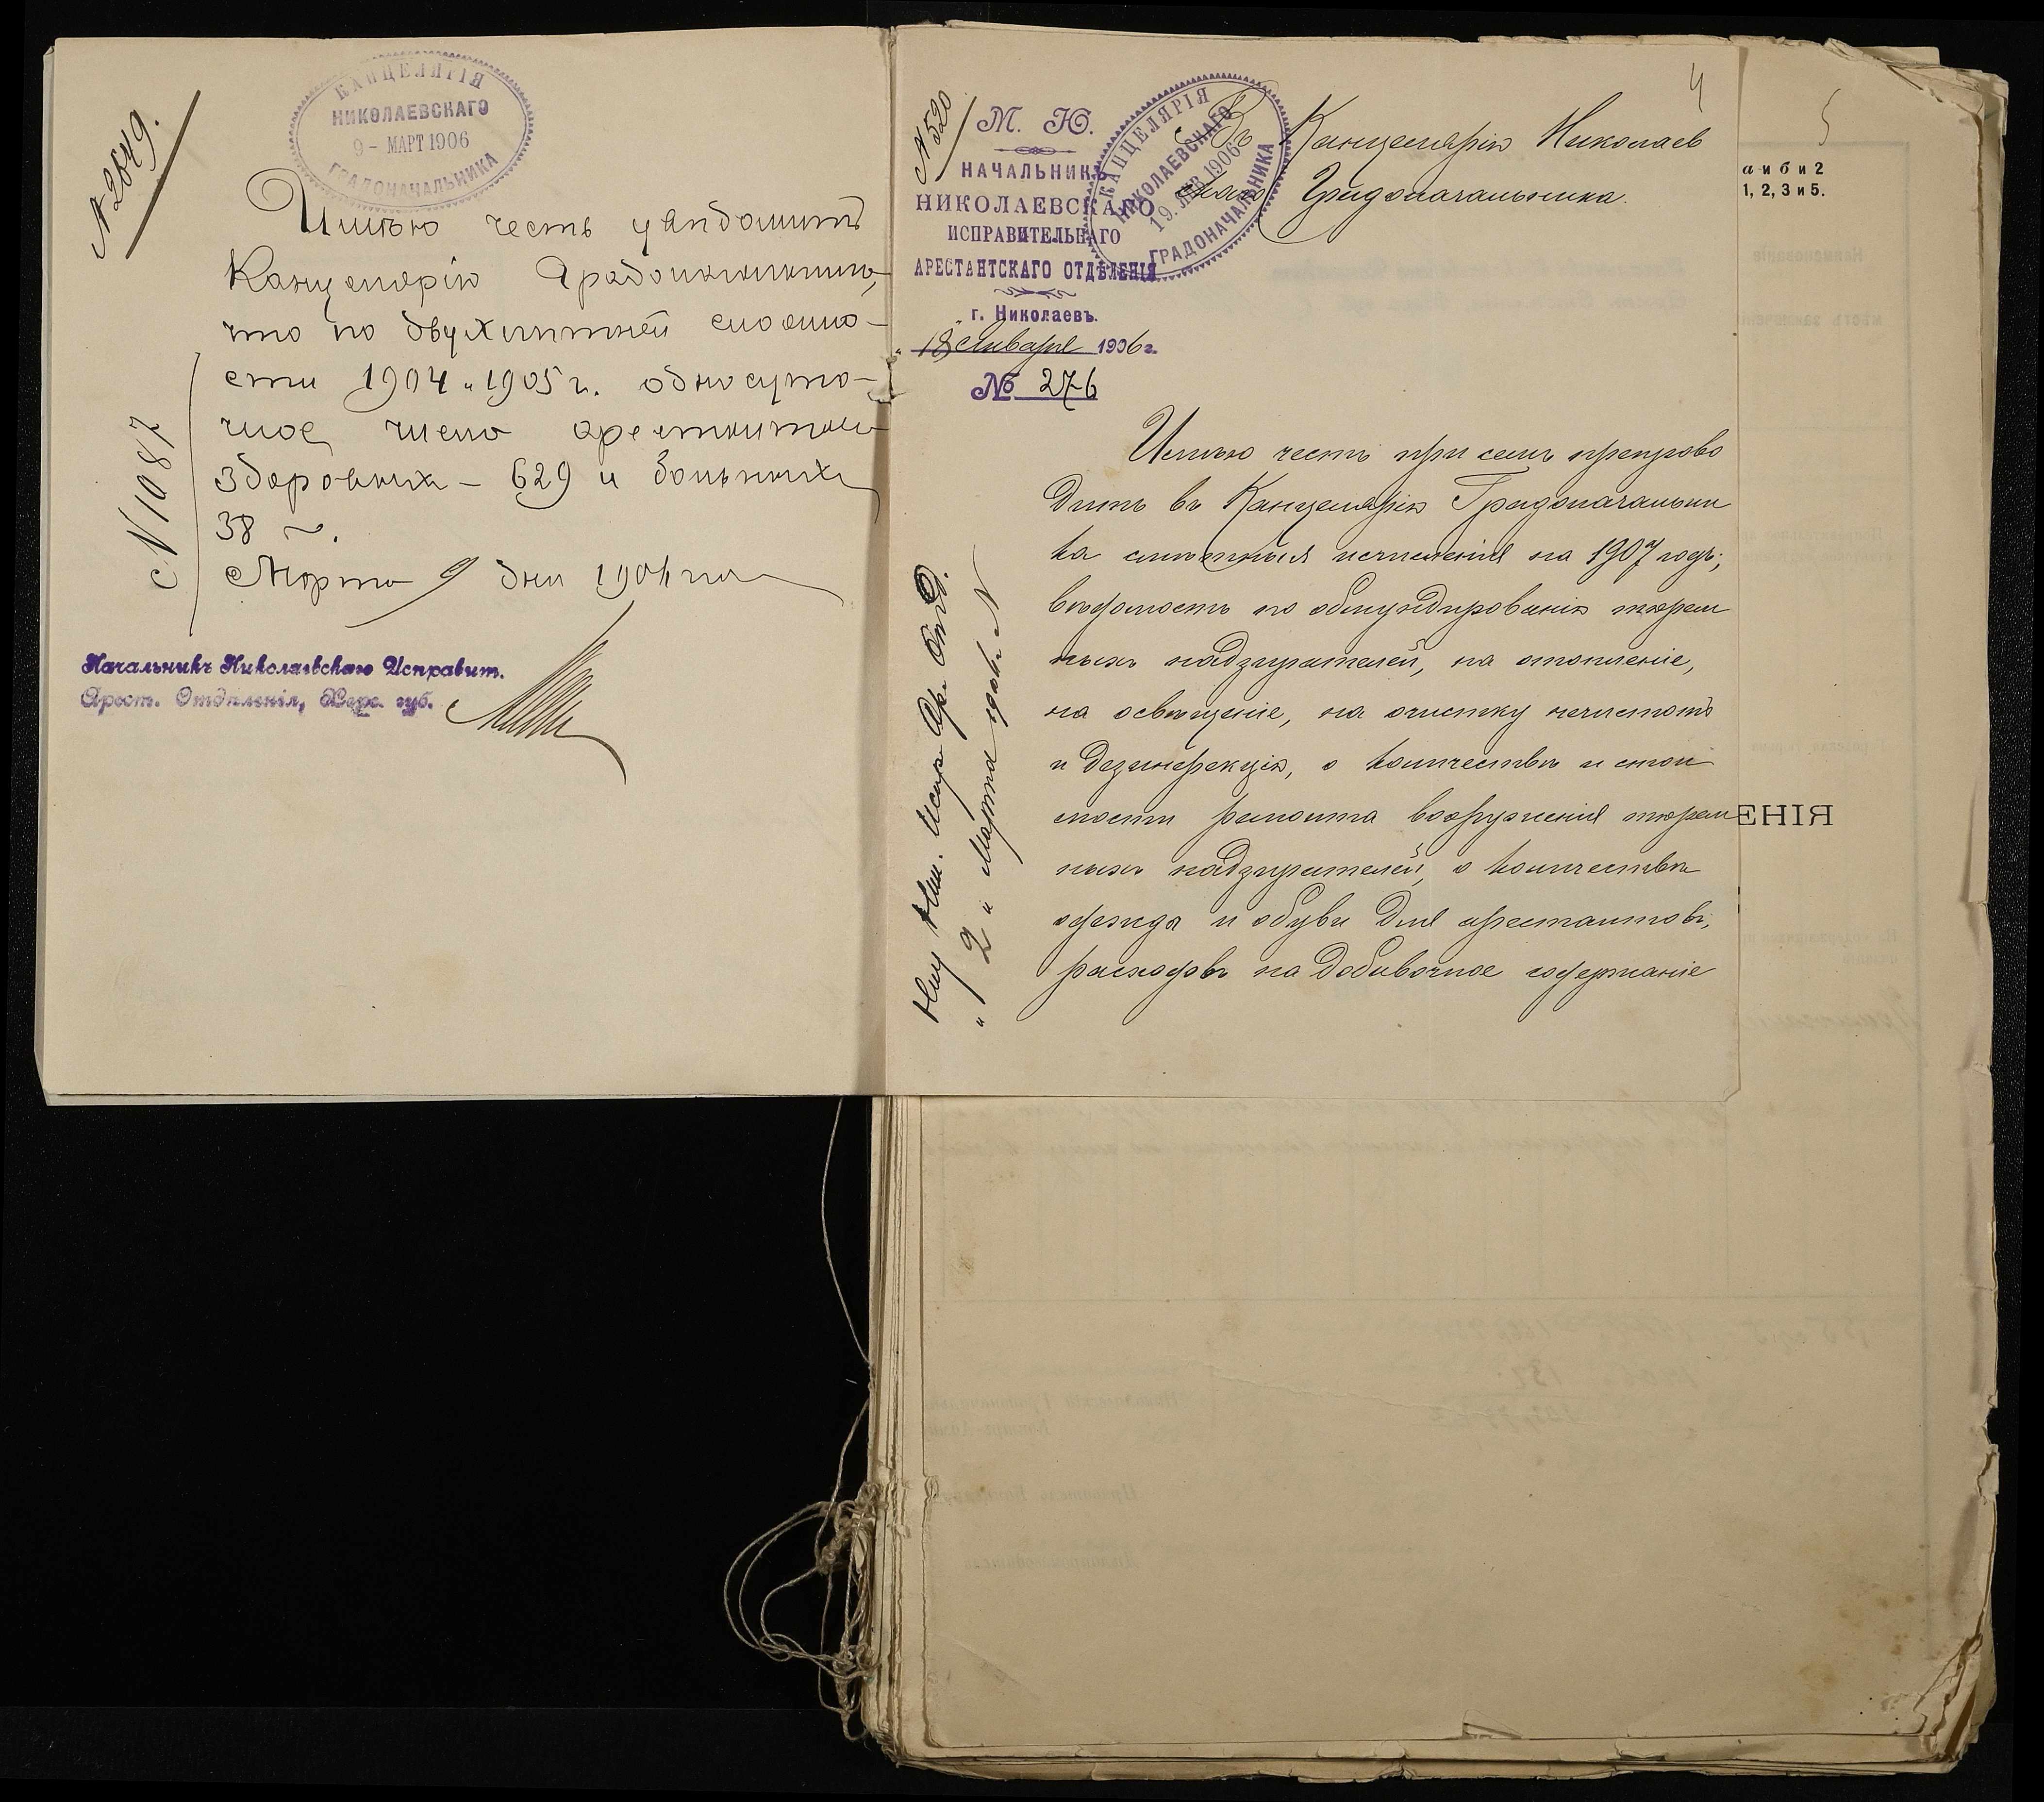 № 2649.
КАНЦЕЛЯРІЯ
НИКОЛАЕВСКАГО
9 - МАРТ 1906
ГРАДОНАЧАЛЬНИКА
Имѣю честь увѣдомить
Канцелярію Градоначальника,
что по двухлѣтней сложно-
сти 1904 и 1905 г. односуто-
чное число арестантовъ
здоровыхъ - 629 и больныхъ
38 ~.
Марта 9 дня 1906 года
№ 1087
Начальникъ Николаевскаго Исправит.
Арест. Отдѣленія, Херс. губ.
4
№ 520
М. Ю.
НАЧАЛЬНИКЪ
НИКОЛАЕВСКАГО
ИСПРАВИТЕЛЬНАГО
АРЕСТАНТСКАГО ОТДѢЛЕНІЯ
г. Николаевъ.
"18" Января 1906 г.
№ 276
КАНЦЕЛЯРІЯ
НИКОЛАЕВСКАГО
19. ЯНВ 1906
ГРАДОНАЧАЛЬНИКА
Въ Канцелярію Николаев
скаго Градоначальника.
Имѣю честь при семъ препрово
дить въ Канцелярію Градоначальни
ка смѣтныя исчисленія на 1907 годъ;
вѣдомость по обмундированію тюрем
ныхъ надзирателей, на отопленіе,
на освѣщеніе, на очистку нечистотъ
и дезинфекцію, о количествѣ и стои
мости ремонта вооруженія тюрем
ныхъ надзирателей, о количествѣ
одежды и обуви для арестантовъ,
расходовъ на добавочное содержаніе
Нич. Ник. Испр. Ар. Отд.
" 2 " Марта 1906 г. №
5
а и б и 2
1, 2, 3 и 5.
ЕНІЯ